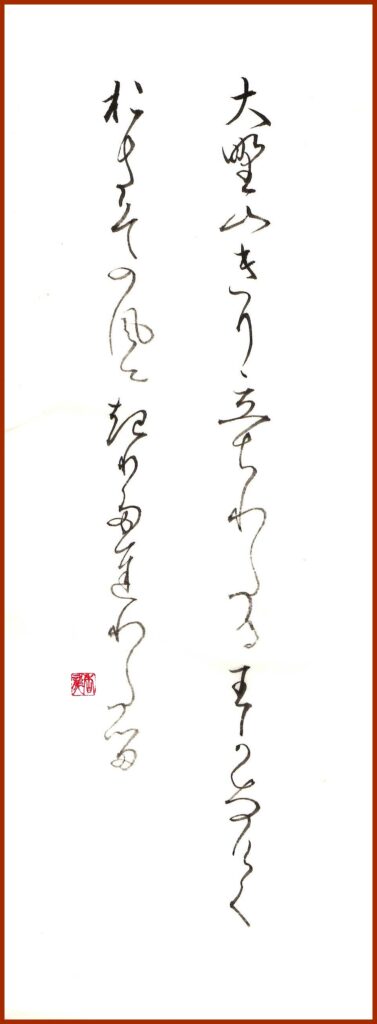 大野山きり立ちわたるわかなけく
おきその風にきりたちわたる